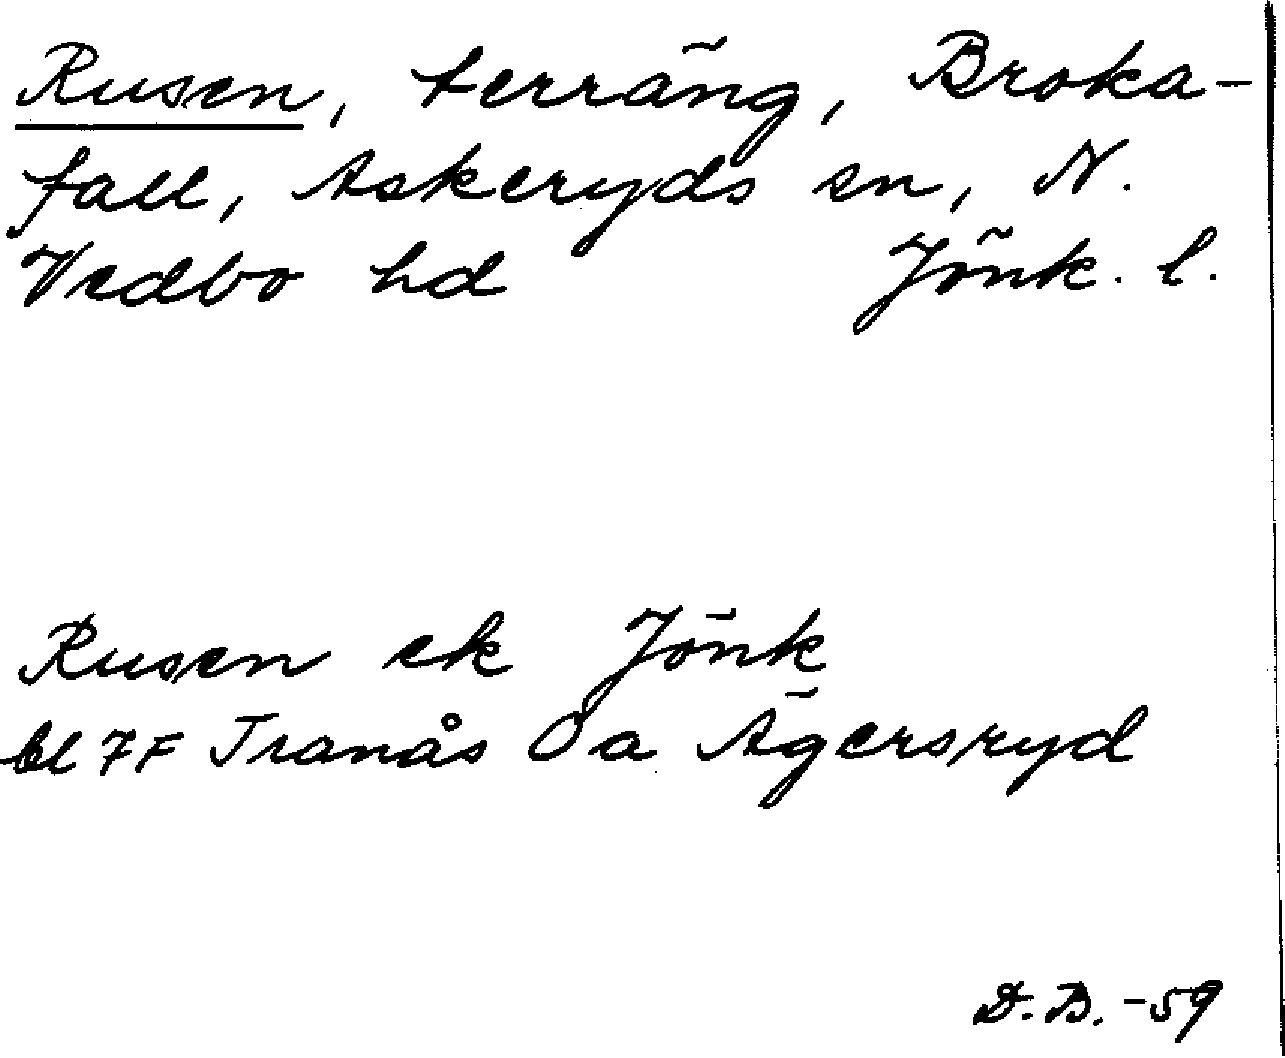 Rusen, terräng, Broka-
fall, Askeryds sn, N.
Vedbo hd Jönk. l.
Rusen ek Jönk
bl 7F Tranås Öa Ägersryd
D.B. -59